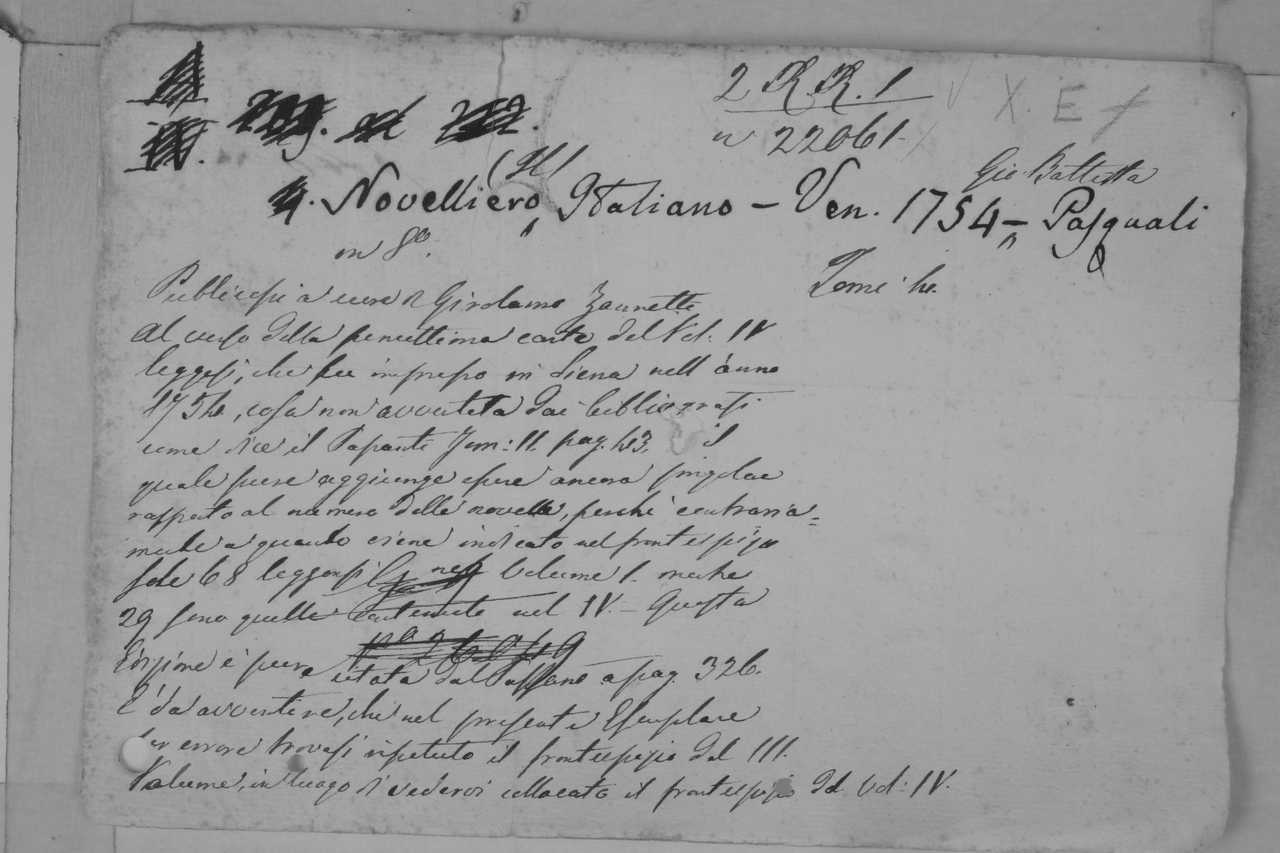 2 R.R. 1
n 22061.
X. E f
(Il)
Gio Battista
4. Novelliero Italiano – Ven. 1754 – Pasquali
in 8º.
Tomi 4.
Pubblicossi a cura di Girolamo Zanetti
Al verso della penultima carta del Vol. IV
leggesi, che fu impresso in Siena nell'anno
1754, cosa non avvertita dai bibliografi
come dice il Papanti Tom: II. pag. 43. il
quale pure aggiunge essere ancora singolare
rapporto al numero delle novelle, perchè contraria=
mente a quanto viene indicato nel frontespizio
sole 68 leggonsi nel Volume I. mentre
29 sono quelle contenute nel IV. – Questa
Edizione è pure citata dal Passano a pag. 326.
È da avvertire, che nel presente Esemplare
per errore trovasi ripetuto il frontespizio del III.
Volume, in luogo di vedervi collocato il frontespizio del Vol: IV.